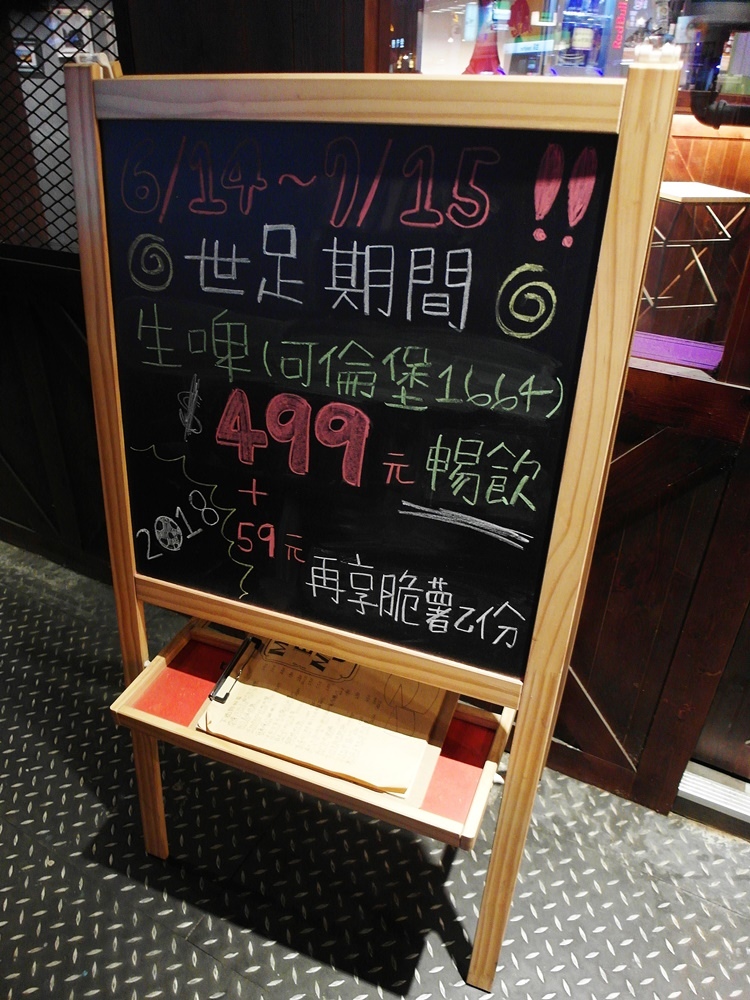 6/14~7/15!!
世足期間
生啤(可倫堡1664)
$499元暢飲
+
59元
再享脆薯乙份
2018
RedBull